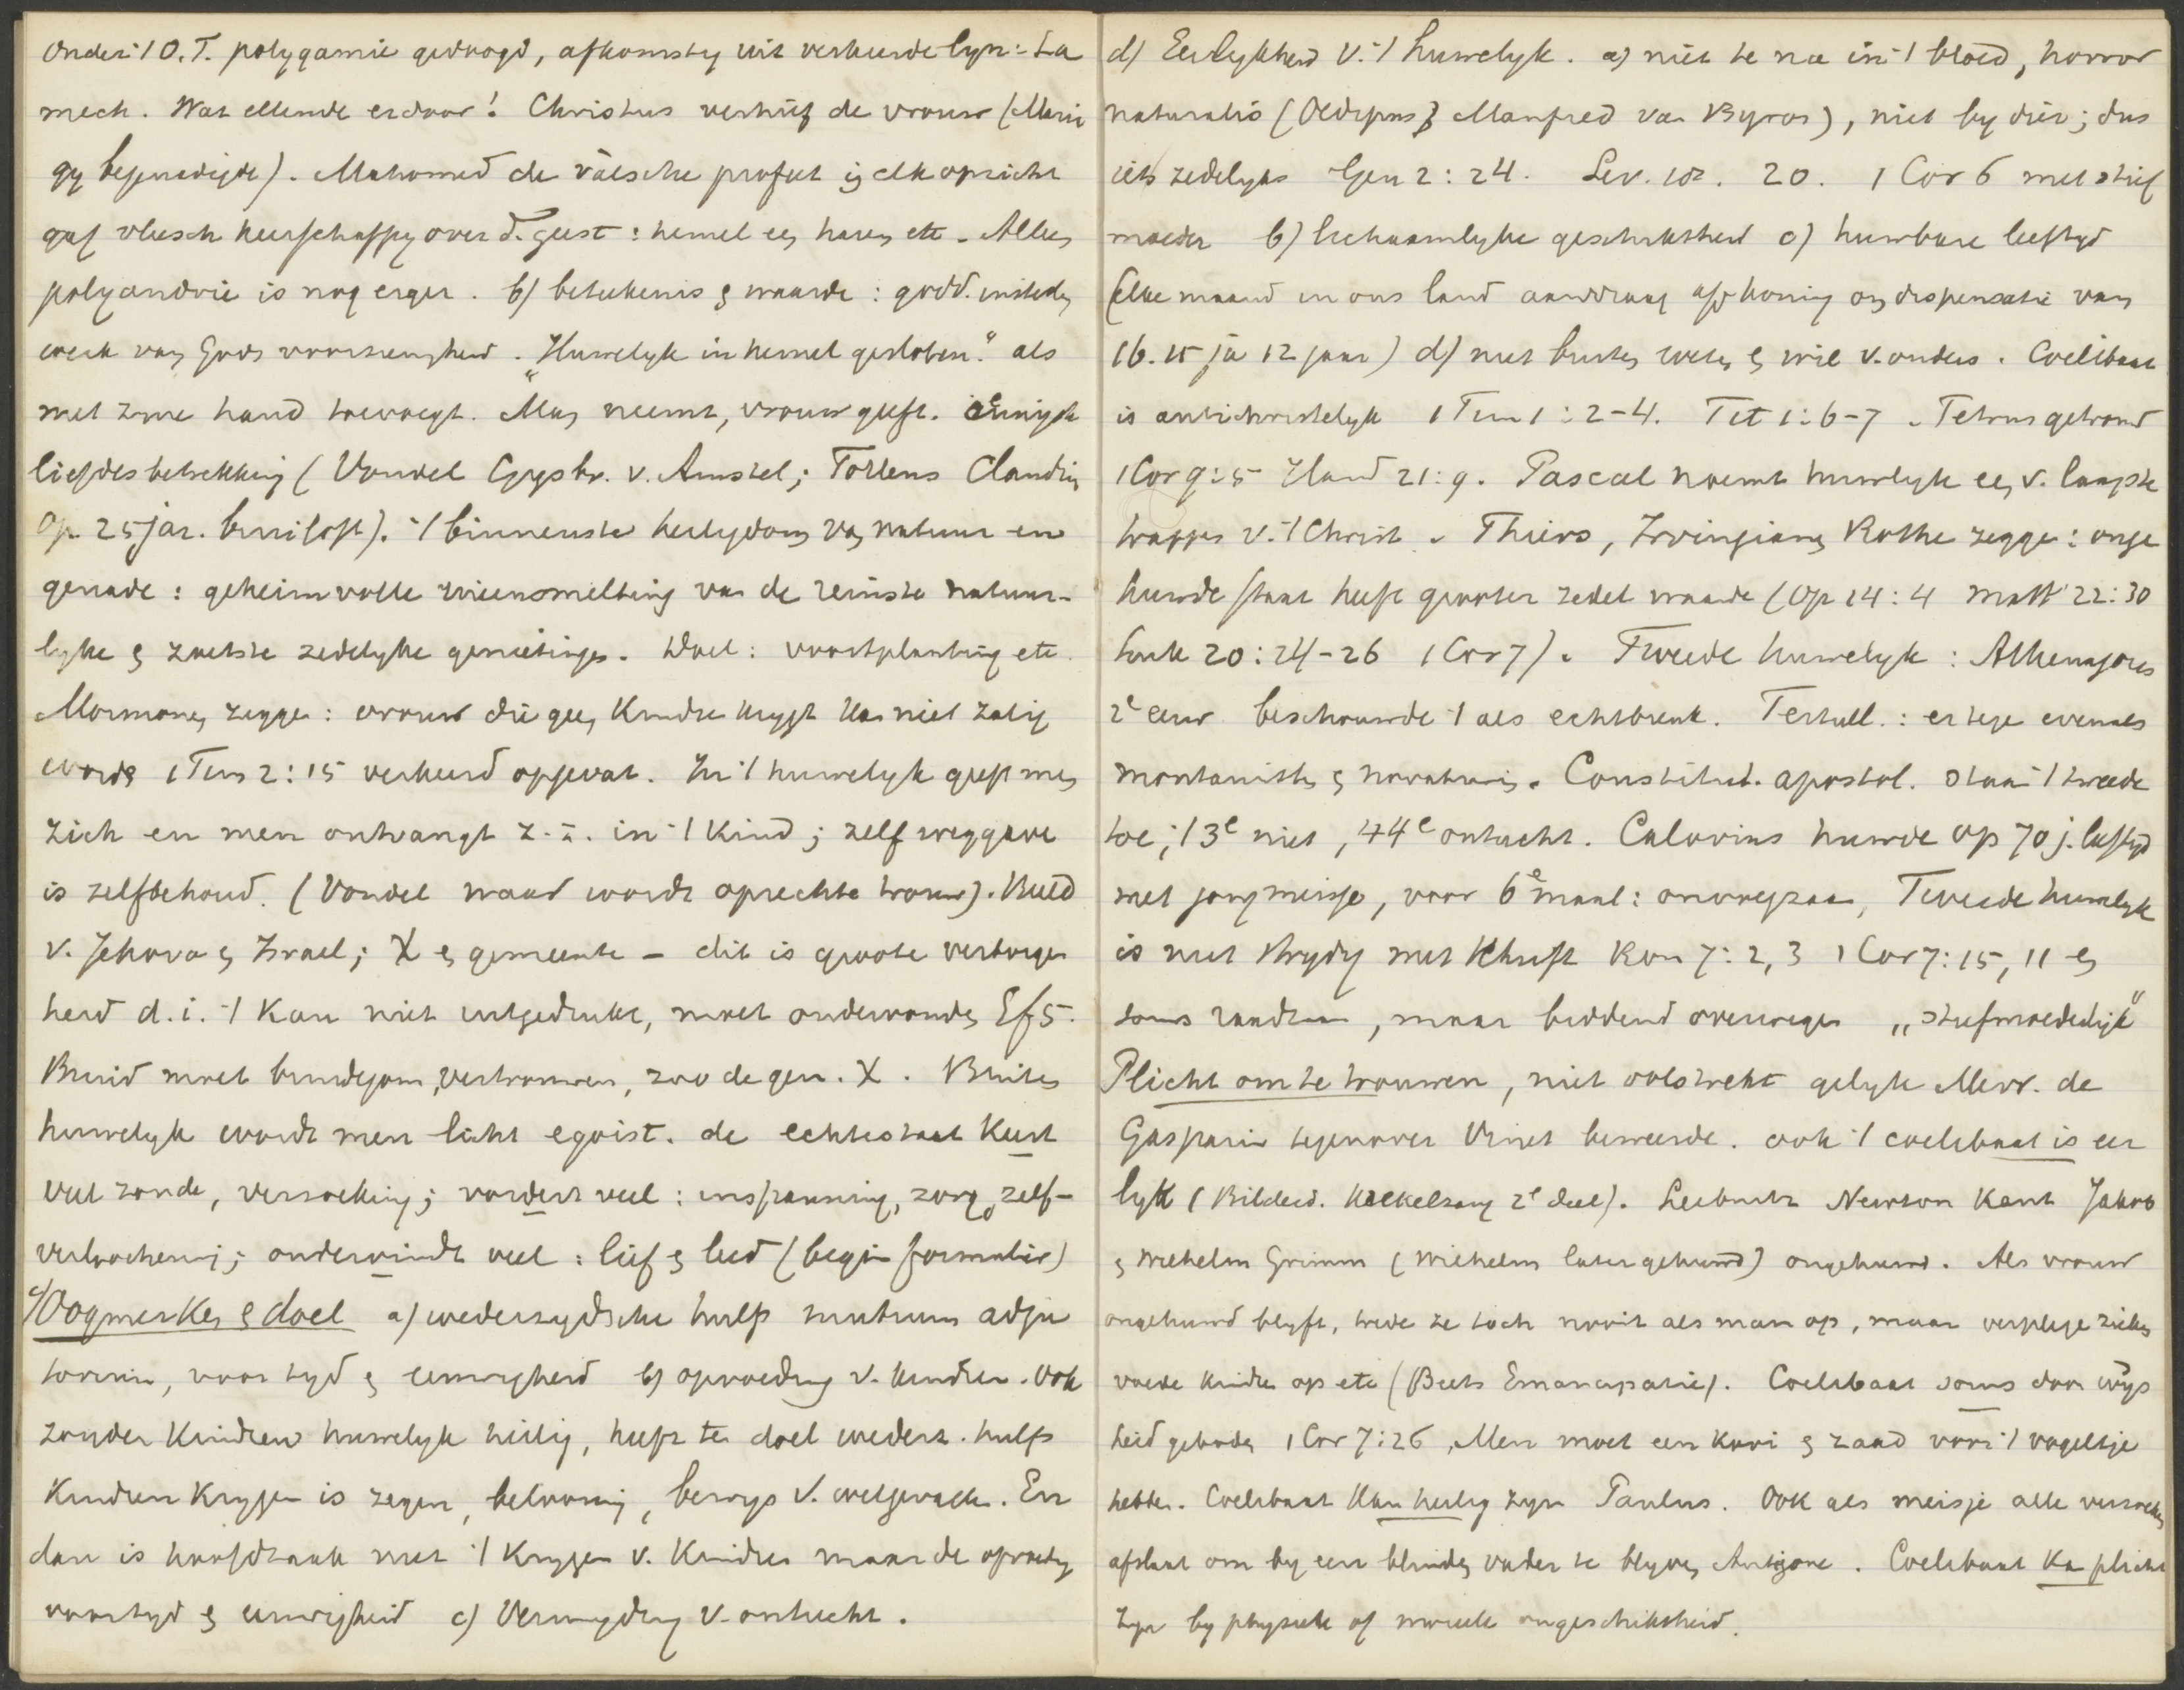 Onder 't O.T. polygamie gedoogd, afkomstig uit verkeerde lyn: La
mech. Wat ellende erdoor! Christus verhief de vrouw (Maria
gy begenadigde). Mahomed de valsche profeet ij elk opzicht
gaf vleesch heerschappy over d. geest: hemel ee harem etc. Alleen
polyandrie is nog erger. b) beteekenis & waarde: godd. instell.
werk van Gods voorzienigheid. "Huwelyk in hemel gesloten" als
met zyne hand toevoegt. Man neemt, vrouw geeft. innigste
liefdesbetrekking (Vondel Gysbr. v. Amstel; Tollens Claudius
Op 25 jar. bruiloft). 't binnenste heiligdom van natuur en
genade: geheimvolle ineensmelting van de reinste natuur-
lyke & zoetste zedelyke genietingen. Doel: voortplanting etc.
Mormonen zeggen: vrouw die geen kindren krygt kan niet zalig
worde 1 Tim 2:15 verkeerd opgevat. In 't huwelyk geeft men
zich en men ontvangt z.z. in 't kind; zelfweggave
is zelfbehoud. (Vondel waar wordt oprechte trouw). Beeld
v. Jehova & Israel; X & gemeente – dit is groote verborgen
heid d.i. 't kan niet uitgedrukt, moet ondervonden Ef 5.
Bruid moet bruidegom vertrouwen, zoo de gem. X. Buiten
huwelyk wordt men licht egoist. de echtestaat kent
veel zonde, verzoeking; vordert veel: inspanning, zorg, zelf-
verloochening; ondervindt veel: lief & leed (begin formulier)
c) Oogmerken & doel a) wederzydsche hulp mutuum adju
torium, voor tyd & eeuwigheid b) opvoeding v. kindren. Ook
zonder kindren huwelyk heilig, heeft ten doel wederz. hulp
Kindren krygen is zegen, belooning, bewys v. welgevallen. En
dan is hoofdzaak niet 't krygen v. kindren maar de opvoeding
voor tyd & eeuwigheid c) Vermyding v. ontucht.
d) Eerlykheid v. 't huwelyk. a) niet te na in 't bloed, horror
naturalis (Oedipus, Manfred van Byron), niet by dier; dus
iets zedelyks Gen 2:24. Lev. 18. 20. 1 Cor 6 met stief
moeder b) lichaamlyke geschiktheid c) huwbare leeftyd
(elke maand in ons land aanvraag aan koning om dispensatie van
16. 15 ja 12 jaar) d) niet buiten weten & wil v. ouders. Coelibaat
is antichristelyk 1 Tim 1:2-4. Tit 1:6-7. Petrus getrouwd
1 Cor 9:5 Hand 21:9. Pascal noemt huwelyk een v. laagste
trappen v. 't Christ. Thiers, Irvingianen Rothe zeggen: onge
huwde staat heeft grooter zedel. waarde (Op 14:4 Matt 22:30
Luk 20:24-26 1 Cor 7). Tweede huwelyk: Athenagoras
2e eeuw beschouwde 't als echtbreuk. Tertull.: ertegen evenals
montanisten & novatianen. Constitut. apostol. staan 't tweede
toe; 't 3e niet, 't 4e ontucht. Calovius huwde op 70 j. leeftyd
met jong meisje, voor 6e maal: onvoegzaam, Tweede huwelyk
is niet strydig met Schrift Rom 7:2,3 1 Cor 7:15, 11 &
soms raadzaam, maar biddend overwegen „stiefmoederlyk"
Plicht om te trouwen, niet volstrekt gelyk Mevr. de
Gasparin tegenover Vinet beweerde. ook 't coelibaat is eer
lyk (Bilderd. 2e deel). Leibnitz Newton Kant Jakob
& Wilhelm Grimm (Wilhelm later gehuwd) ongehuwd. Als vrouw
ongehuwd blyft, trede ze toch nooit als man op, maar verplege zieken
voede kindren op etc (Beets Emancipatie). Coelibaat soms door wys
heid geboden 1 Cor 7:26, Men moet een kooi & zaad voor 't vogeltje
hebben. Coelibaat kan heilig zyn Paulus. Ook als meisje alle verzoeken
afslaat om by een blinden vader te blyven Antigone. Coelibaat kan plicht
zyn by physieke of moreele ongeschiktheid.